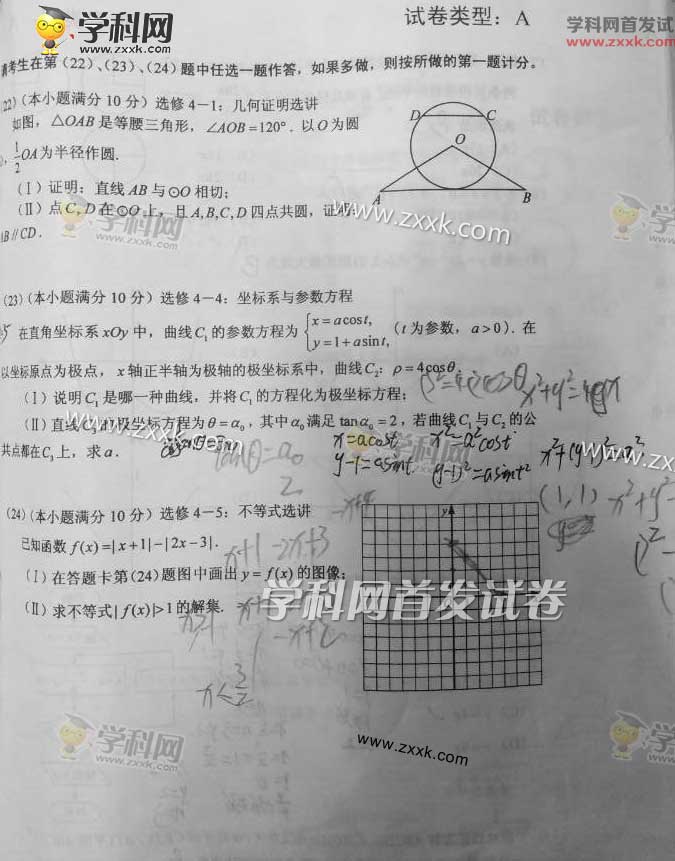 学科网
www.zxxk.com
试卷类型：A
学科网首发试
www.zxxk.com
请考生在第（22）、（23）、（24）题中任选一题作答，如果多做，则按所做的第一题计分。
(22)（本小题满分 10 分）选修 4－1：几何证明选讲
如图，△OAB 是等腰三角形，∠AOB＝120°．以 O 为圆
心，1/2 OA 为半径作圆.
（Ⅰ）证明：直线 AB 与⊙O 相切；
（Ⅱ）点 C, D 在⊙O 上，且 A,B,C,D 四点共圆，证明：
AB // CD．
D C
O
A B
学科网
www.zxxk.com
www.zxxk.com
(23)（本小题满分 10 分）选修 4－4：坐标系与参数方程
在直角坐标系 xOy 中，曲线 C₁ 的参数方程为 { x = a cos t, y = 1 + a sin t, （t 为参数，a > 0）．在
以坐标原点为极点，x 轴正半轴为极轴的极坐标系中，曲线 C₂：ρ = 4cosθ．
（Ⅰ）说明 C₁ 是哪一种曲线，并将 C₁ 的方程化为极坐标方程；
（Ⅱ）直线 C₃ 的极坐标方程为 θ = α₀，其中 α₀ 满足 tan α₀ = 2，若曲线 C₁ 与 C₂ 的公
共点都在 C₃ 上，求 a．
x=acost x²=a²cost x²+(y-1)²=a²
y-1=asint (y-1)²=asint²
tanθ=a₀
2
(1,1) x²+y²-
www.zxxk.com
(24)（本小题满分 10 分）选修 4－5：不等式选讲
已知函数 f(x) = | x + 1 | − | 2x − 3 |．
（Ⅰ）在答题卡第（24）题图中画出 y = f(x) 的图像；
（Ⅱ）求不等式 | f(x) | > 1 的解集．
-x+4
x+1-2x+3
y
学科网首发试卷
学科网
www.zxxk.com
www.zxxk.com